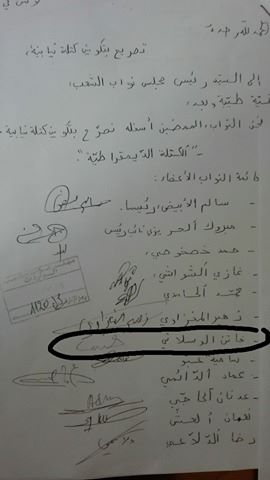 الحمد لله وحده
تصريح بتكوين كتلة نيابية
إلى السيد رئيس مجلس نواب الشعب
تحية طيبة وبعد،
نحن النواب الممضين أسفله نصرّح بتكوين كتلة نيابية
-"الكتلة الديمقراطية".
قائمة النواب الأعضاء:
- سالم الأبيض، رئيسا.
- مبروك الحريزي نائب رئيس
- حمد خصخوصي
- غازي الشواشي
- محمد الحامدي
- زهير المغزاوي
- فاتن الوسلاتي
- سامية عبو
- عماد الدائمي
- عدنان الحاجي
- نعمان العش
- رضا الدلاعي